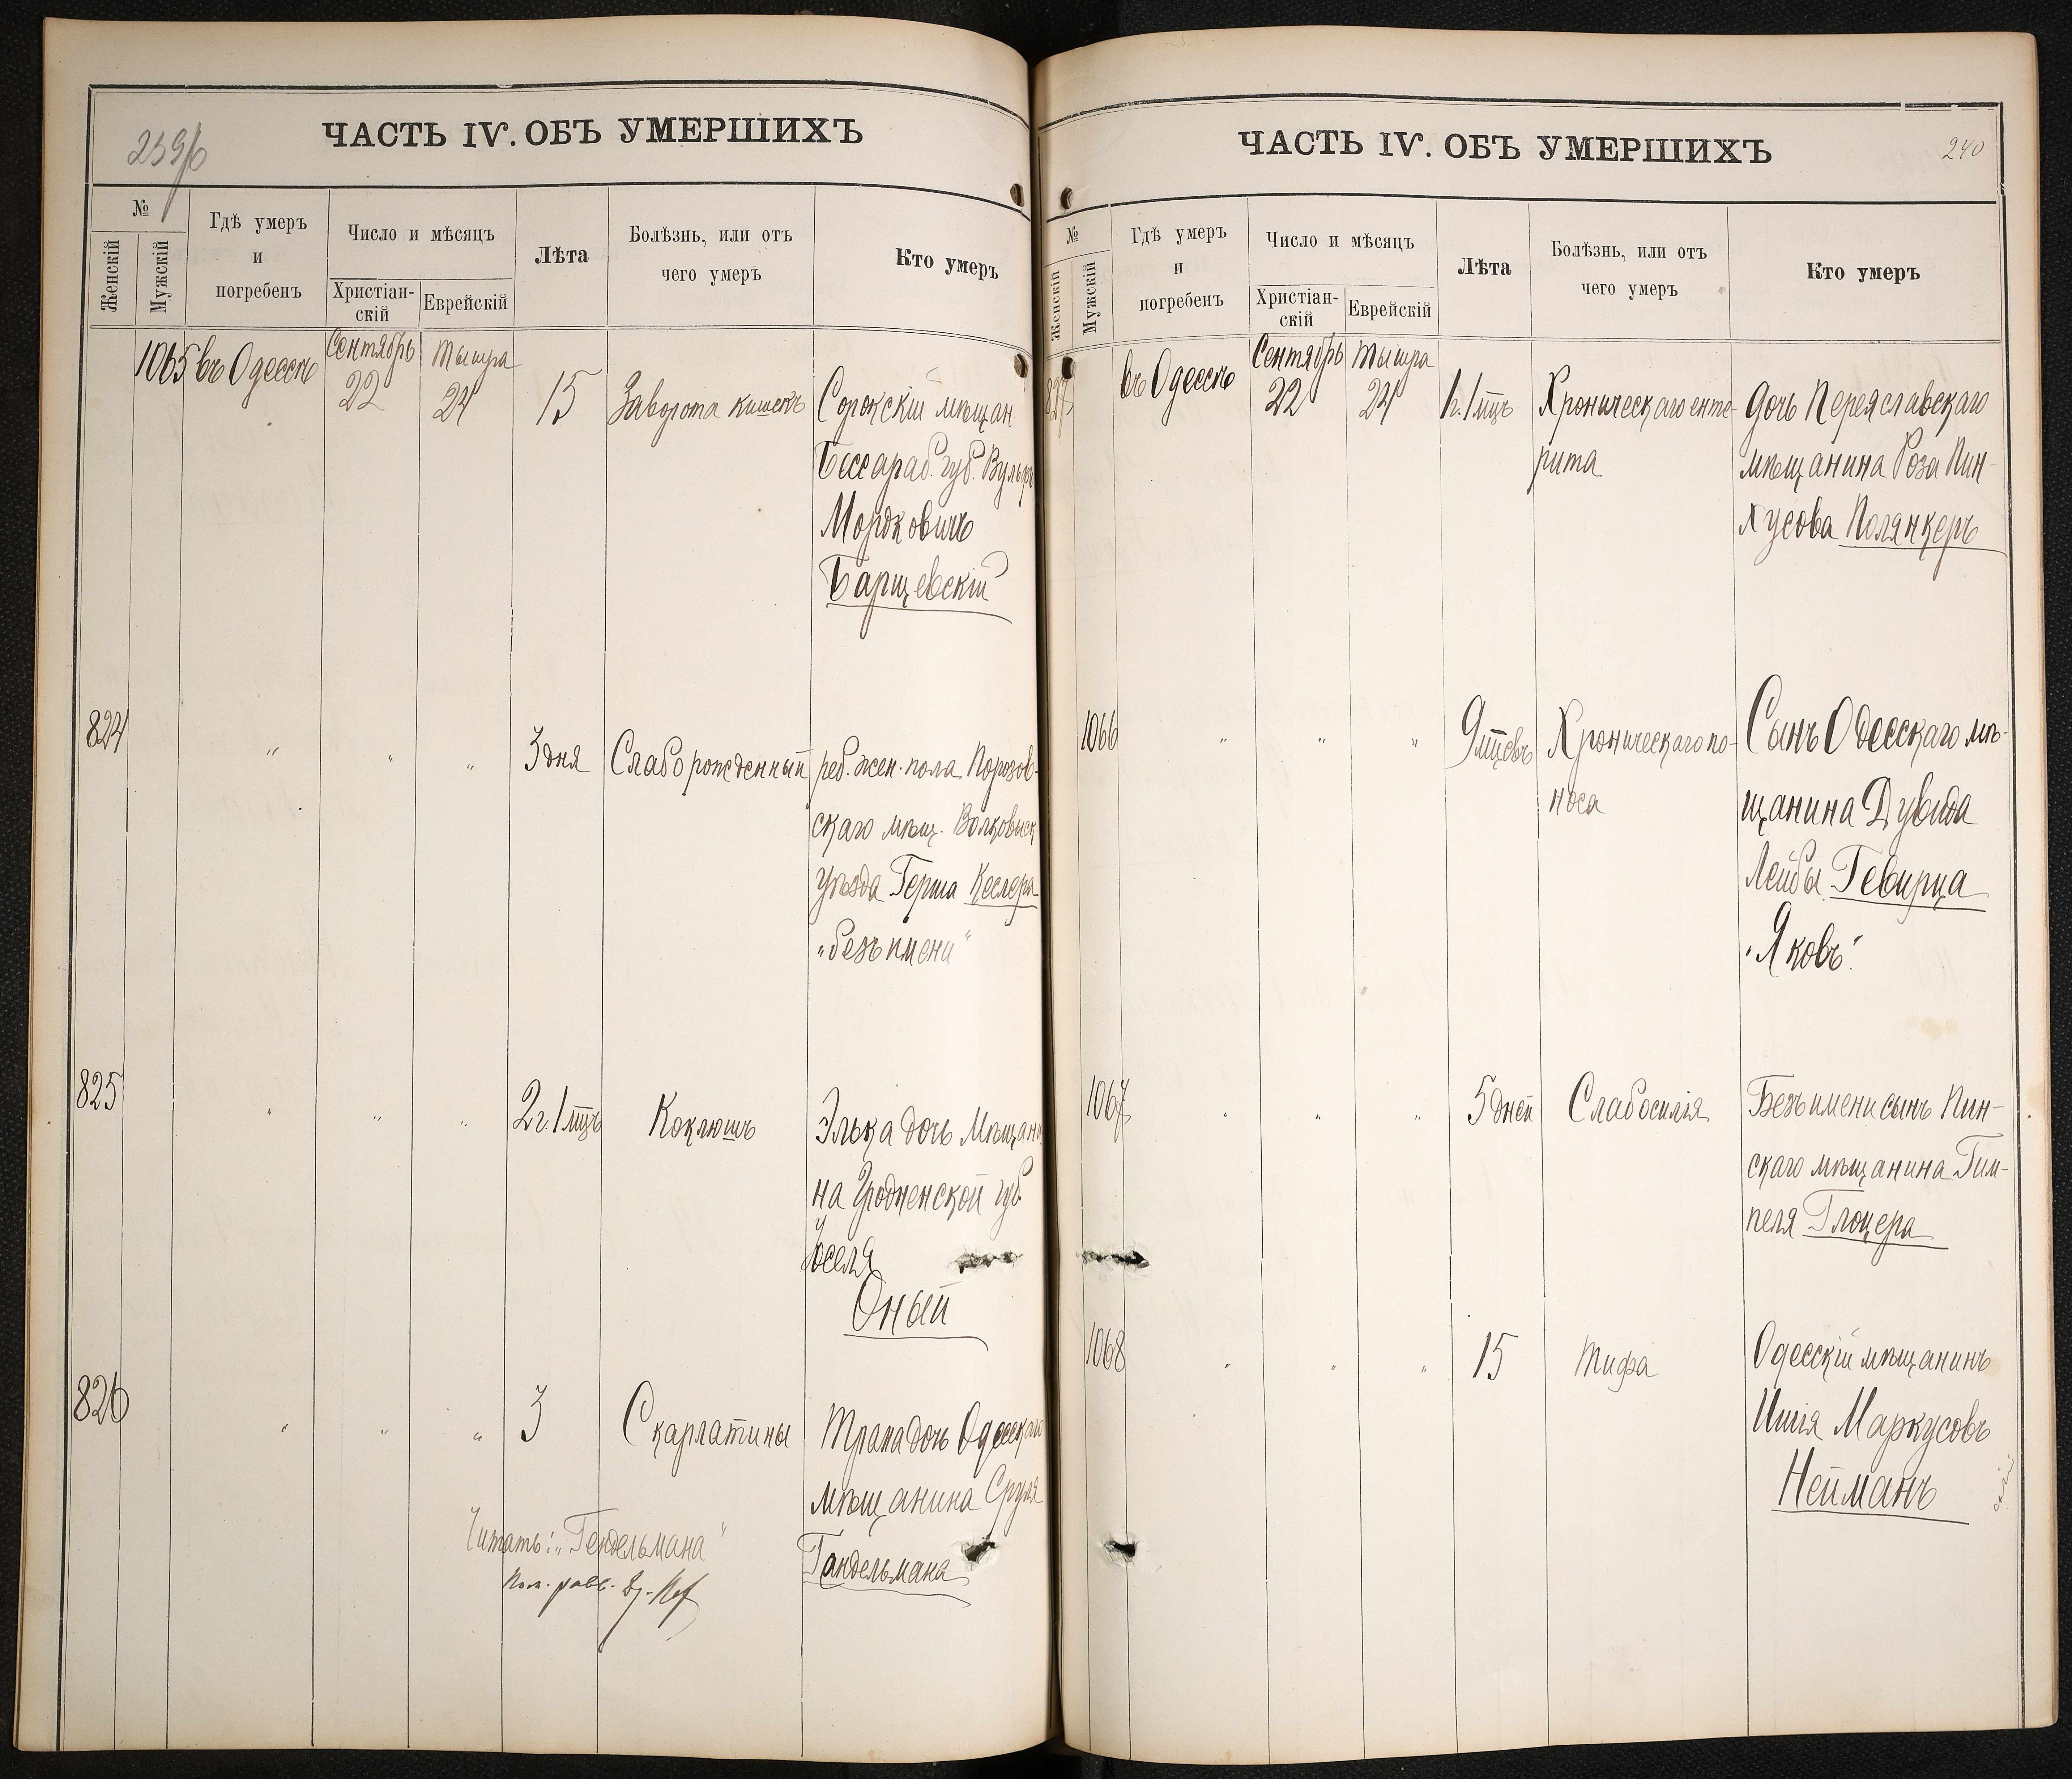 239/б
ЧАСТЬ IV. ОБЪ УМЕРШИХЪ
№
Женскій
Мужскій
Гдѣ умеръ
и
погребенъ
Число и мѣсяцъ
Христіан-
скій
Еврейскій
Лѣта
Болѣзнь, или отъ
чего умеръ
Кто умеръ
1065 въ Одессѣ Сентябрь 22 Тышра 24 15 Заворота кишекъ Сорокскій мѣщан
Бессараб. губ. Вульфъ
Мордковичъ
Барщевскій
824 " " " 3 дня Слаборожденный реб. жен. пола Порозов-
скаго мѣщ. Волковыск.
уѣзда Герша Кеслера
"безъ имени"
825 " " " 2 г. 1 мцъ Коклюшъ Элька дочь Мѣщани
на Гродненской губ.
Іоселя
Оный
826 " " " 3 Скарлатины дочь Одесскаго
мѣщанина Сруля
Гандельмана
Читать: "Гендельмана"
240
ЧАСТЬ IV. ОБЪ УМЕРШИХЪ
№
Женскій
Мужскій
Гдѣ умеръ
и
погребенъ
Число и мѣсяцъ
Христіан-
скій
Еврейскій
Лѣта
Болѣзнь, или отъ
чего умеръ
Кто умеръ
827 въ Одессѣ Сентябрь 22 Тышра 24 1 г. 1 мцъ Хроническаго енте- дочь Переяславскаго
рита мѣщанина Роза Пин-
хусова Полянкеръ
1066 " " " 9 мцевъ Хроническаго по- Сынъ Одесскаго мѣ-
носа щанина Дувида
Лейбы Гевирца
"Яковъ".
1067 " " " 5 дней Слабосилія Безъ имени сынъ Пин-
скаго мѣщанина Гим-
пеля Глоцера
1068 " " " 15 Тифа Одесскій мѣщанинъ
Шия Маркусовъ
Нейманъ